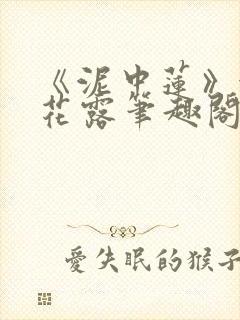 《泥中蓮》
花露筆趣閣
愛失眠的猴子